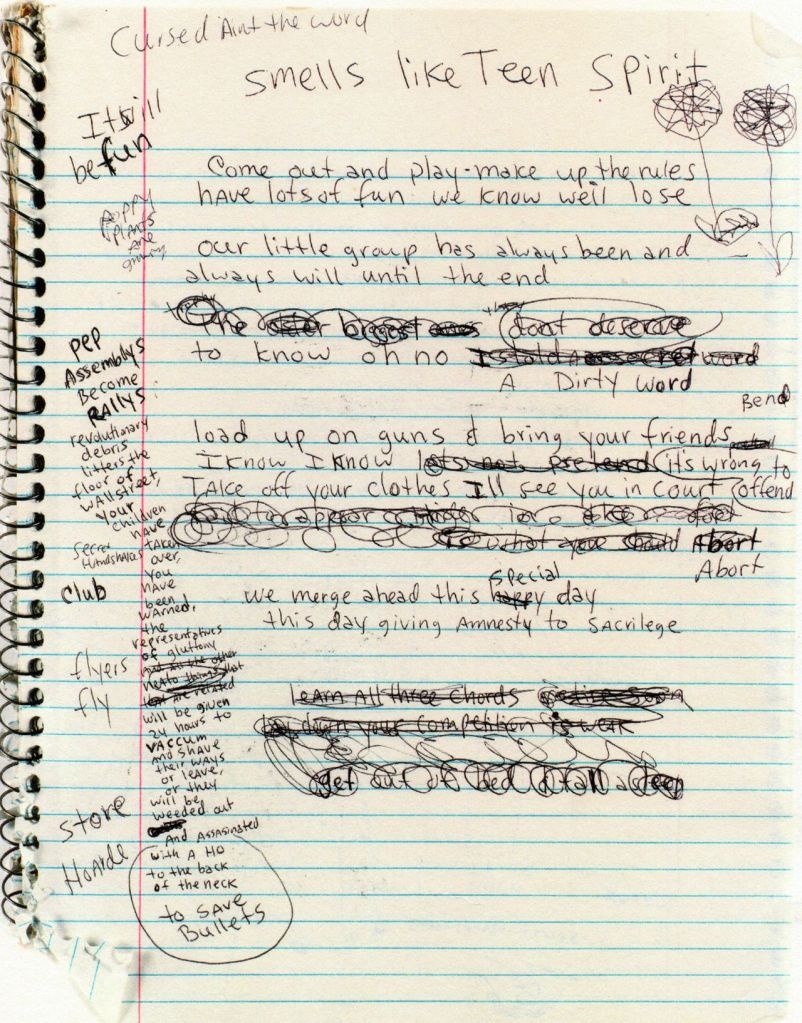 Cursed Aint the word
smells like Teen Spirit
It will
be fun
Come out and play - make up the rules
have lots of fun we know we'll lose
Poppy
Plants
are
our little group has always been and
always will until the end
The biggest dont deserve
to know oh no word
A Dirty word
Bend
load up on guns & bring your friends
I know I know lets not pretend its wrong to
offend
Take off your clothes I'll see you in court
is what you should Abort
Abort
special
we merge ahead this happy day
this day giving Amnesty to sAcrilege
learn All three chords
lay down your competition is weak
get out of bed
pep
Assemblys
Become
RAllys
revolutionary
debris
litters the
floor of
WAllstreet,
your
children
have
taken
over,
you
have
been
warned,
the
representatives
of gluttony
And all the other
that
are related
will be given
24 hours to
vaccum
and shave
their ways
or leave,
or they
will be
weeded out
And Assasinated
with A Ho
to the back
of the neck
to save
Bullets
secret
Handshakes
club
flyers
fly
store
Hoarde